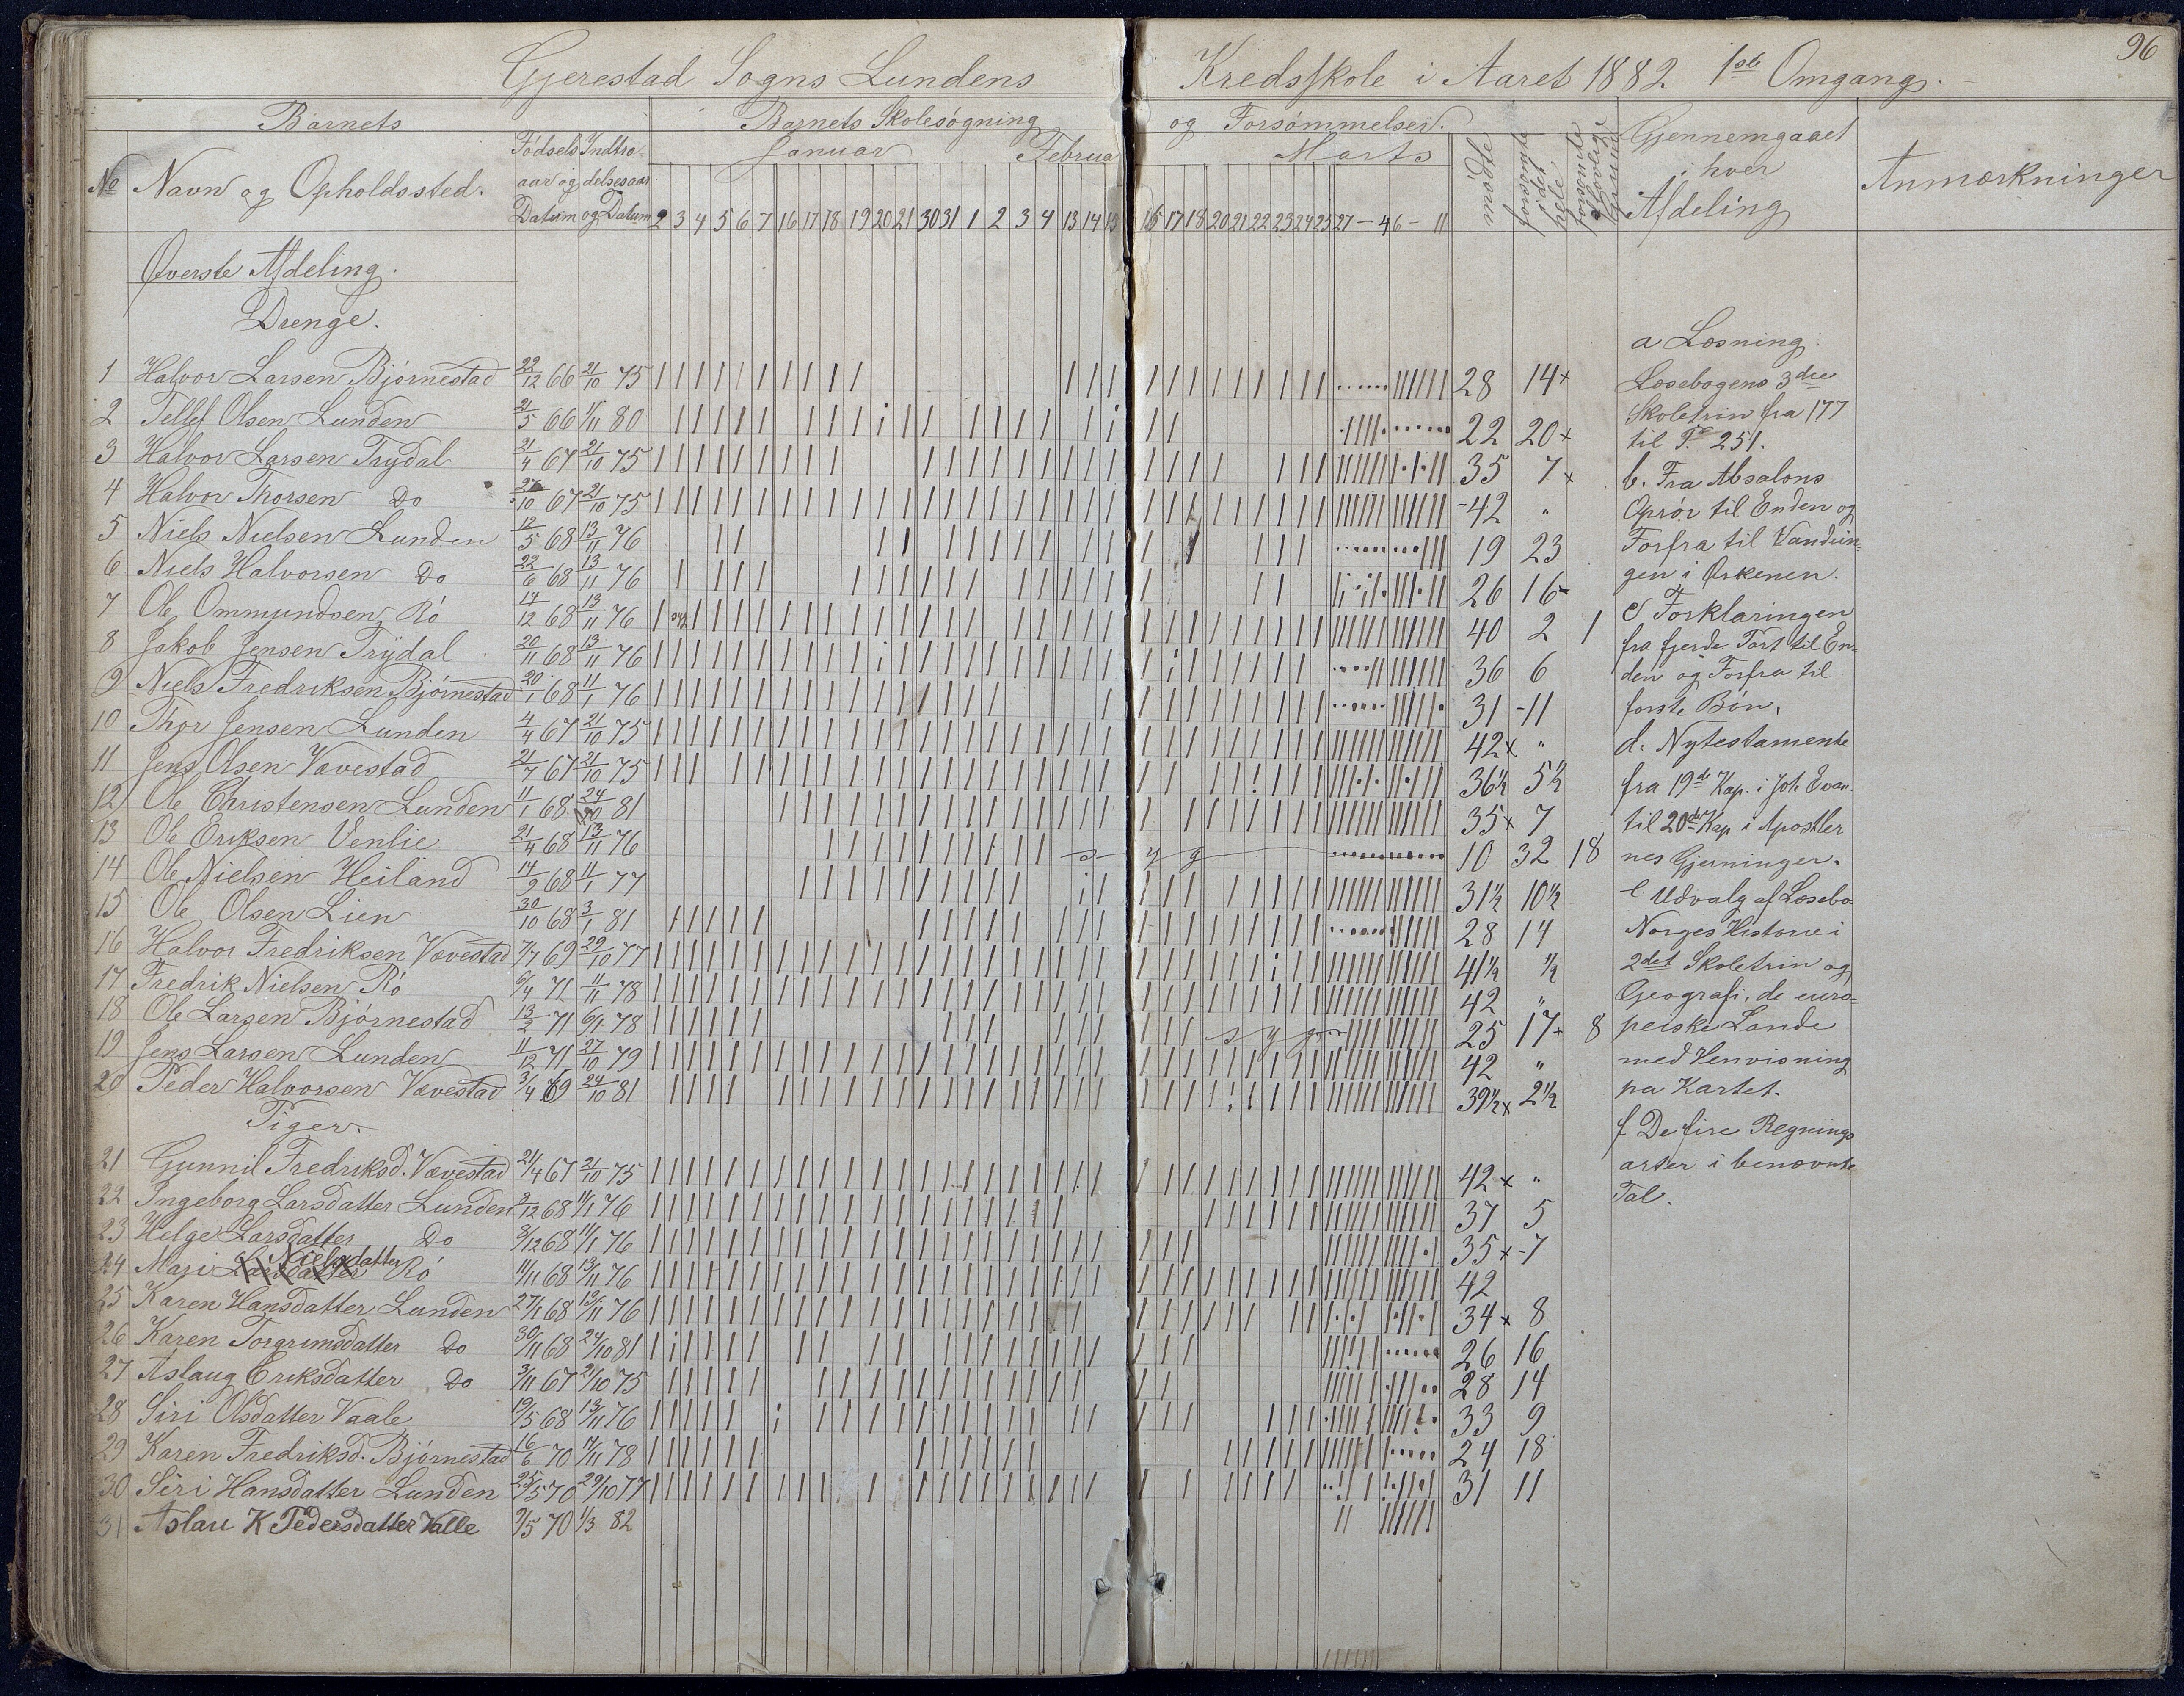 96
Gjerestad Sogns Lundens Kredsskole i Aaret 1882 1ste Omgang.
Barnets
Barnets Skolesøgning og Forsømmelser.
No Navn og Opholdssted.
Fødselsaar og Datum
Indtrædelsesaar og Datum
Januar Februar Marts
2 3 4 5 6 7 16 17 18 19 20 21 30 31 1 2 3 4 13 14 15 16 17 18 20 21 22 23 24 25 27 - 4 6 - 11
mødte
forsømte i det hele
forsømte af lovlige Grunde
Gjennemgaaet i hver Afdeling
Anmærkninger
Øverste Afdeling.
Drenge.
1 Halvor Larsen Bjørnestad 22/12 66 21/10 75 28 14
2 Tellef Olsen Lunden 21/5 66 1/11 80 22 20
3 Halvor Larsen Trydal 21/4 67 21/10 75 35 7
4 Halvor Thorsen Do 27/10 67 21/10 75 42 "
5 Niels Nielsen Lunden 12/5 68 13/11 76 19 23
6 Niels Halvorsen Do 22/6 68 13/11 76 26 16
7 Ole Ommundsen Rö 14/12 68 13/11 76 40 2 1
8 Jakob Jensen Trydal 20/11 68 13/11 76 36 6
9 Niels Fredriksen Bjørnestad 20/1 68 11/1 76 31 11
10 Thor Jensen Lunden 4/4 67 21/10 75 42 "
11 Jens Olsen Vævestad 21/7 67 21/10 75 36½ 5½
12 Ole Christensen Lunden 11/1 68 24/10 81 35 7
13 Ole Eriksen Venlie 21/4 68 13/11 76 10 32 18
14 Ole Nielsen Heiland 14/9 68 11/1 77 31½ 10½
15 Ole Olsen Lien 30/10 68 3/1 81 28 14
16 Halvor Fredriksen Vævestad 7/7 69 29/10 77 41½ ½
17 Fredrik Nielsen Rö 6/4 71 11/11 78 42 "
18 Ole Larsen Bjørnestad 13/2 71 6/1 78 25 17 8
19 Jens Larsen Lunden 11/12 71 27/10 79 42 "
20 Peder Halvorsen Vævestad 3/4 69 24/10 81 39½ 2½
Piger.
21 Gunnil Fredriksd. Vævestad 21/4 67 21/10 75 42 "
22 Ingeborg Larsdatter Lunden 2/12 68 11/1 76 37 5
23 Helge Larsdatter Do 3/12 68 11/1 76 35 7
24 Mari Larsdatter Nielsdatter Rö 14/11 68 13/11 76 42
25 Karen Hansdatter Lunden 27/1 68 13/11 76 34 8
26 Karen Torgrimsdatter Do 30/11 68 24/10 81 26 16
27 Aslaug Eriksdatter Do 3/11 67 21/10 75 28 14
28 Siri Olsdatter Vaale 19/5 68 13/11 76 33 9
29 Karen Fredriksd. Bjørnestad 16/6 70 11/11 78 24 18
30 Siri Hansdatter Lunden 25/5 70 29/10 77 31 11
31 Aslau K Pedersdatter Valle 9/5 70 1/3 82
a Læsning
Læsebogens 3die
Skoletrin fra 177
til P. 251.
b. Fra Absalons
Oprør til Enden og
Forfra til Vandrin-
gen i Ørkenen.
c Forklaringen
fra fjerde Part til En-
den og Forfra til
første Bøn.
d. Nytestamente
fra 19de Kap. i Joh. Evan
til 20de Kap i Apostler
nes Gjerninger.
e Udvalg af Læsebo-
Norges Historie i
2det Skoletrin og
Geografi, de euro-
pæiske Lande
med Henvisning
pa Kartet.
f De fire Regnings
arter i benævnte
Tal.